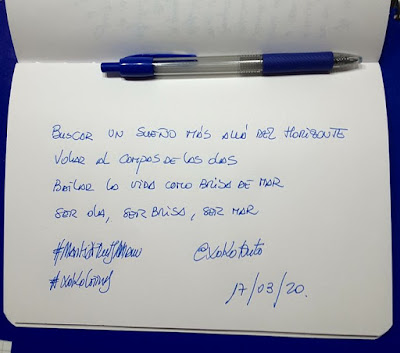 BUSCAR UN SUEÑO MÁS ALLÁ DEL HORIZONTE
VOLAR AL COMPAS DE LAS OLAS
BAILAR LA VIDA COMO BRISA DE MAR
SER OLA, SER BRISA, SER MAR
@xoKoTouTo
17/03/20.